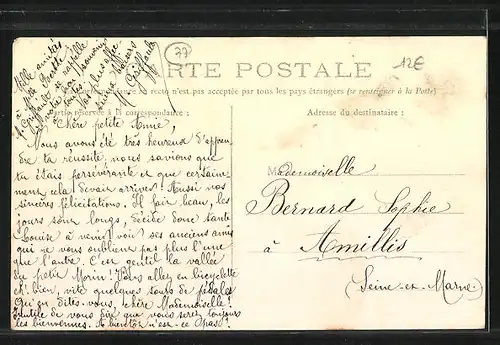 77
12E
CARTE POSTALE
recto n'est pas accepté par tous les pays étrangers (se renseigner à la Poste)
Partie réservée à la correspondance :
Adresse du destinataire :
Mille amitiés
Chère petite Amie,
Nous avons été très heureux d'appren
dre ta réussite; nous savions que
tu étais persévérante et que certaine
ment cela devait arriver! Aussi nos
sincères félicitations. Il fait beau, les
jours sont longs, décide donc tante
Louise à venir voir ses anciens amis
qui ne vous oublient pas plus l'une
que l'autre. C'est gentil la vallée
du petit Morin! Vous allez en bicyclette
eh! bien, vite quelques tours de pédales
Qu'en dites-vous, chère Mademoiselle?
Inutile de vous dire que vous serez toujours
les bienvenues. A bientôt n'est-ce pas?
Mademoiselle
Bernard Sophie
à Amillis
(Seine-et-Marne)